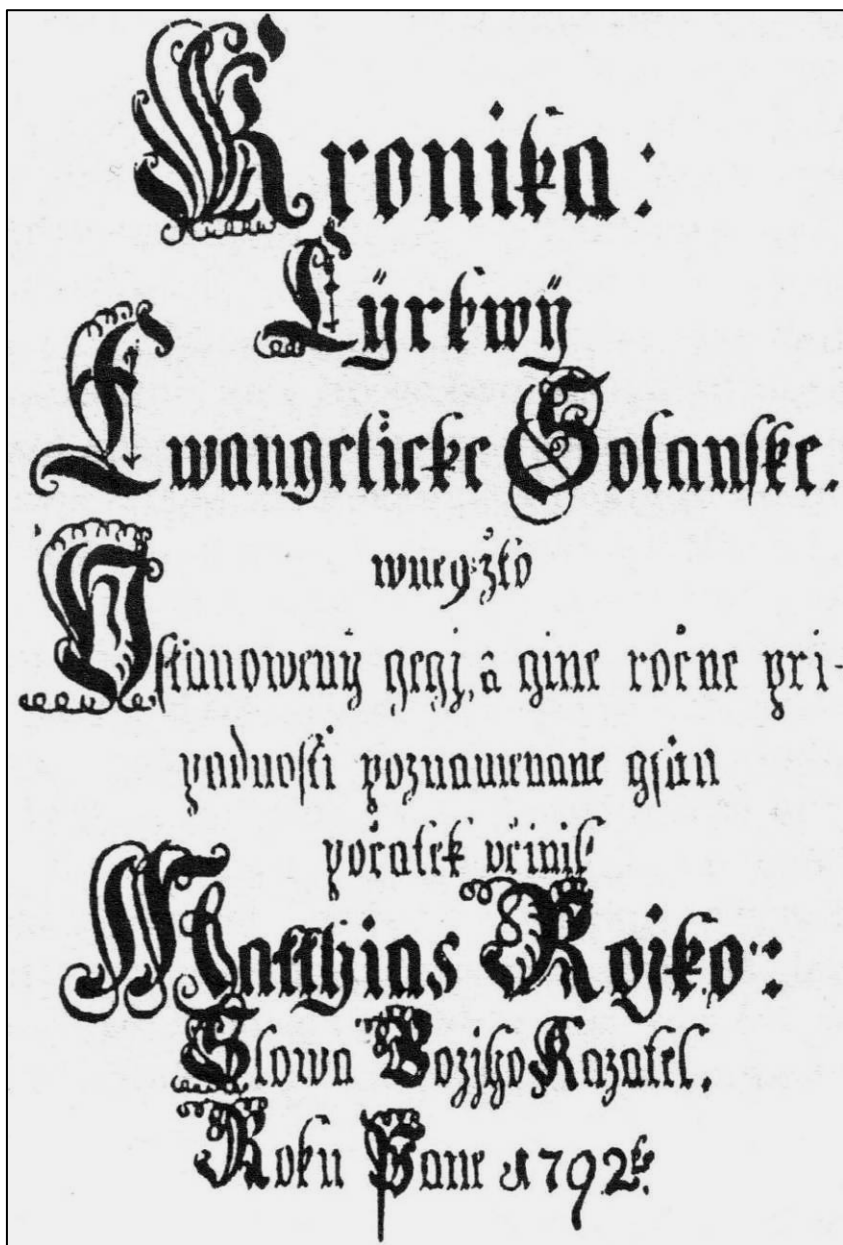 Kronika:
Cÿrkwÿ
Ewangelicke Solanske.
wnegžto
Vstanowenÿ gegj, a gine ročne pri-
padnosti poznamenane gsau
počatek včinil
Matthias Rojko:
Slowa Bozjho Kazatel.
Roku Pane 1792